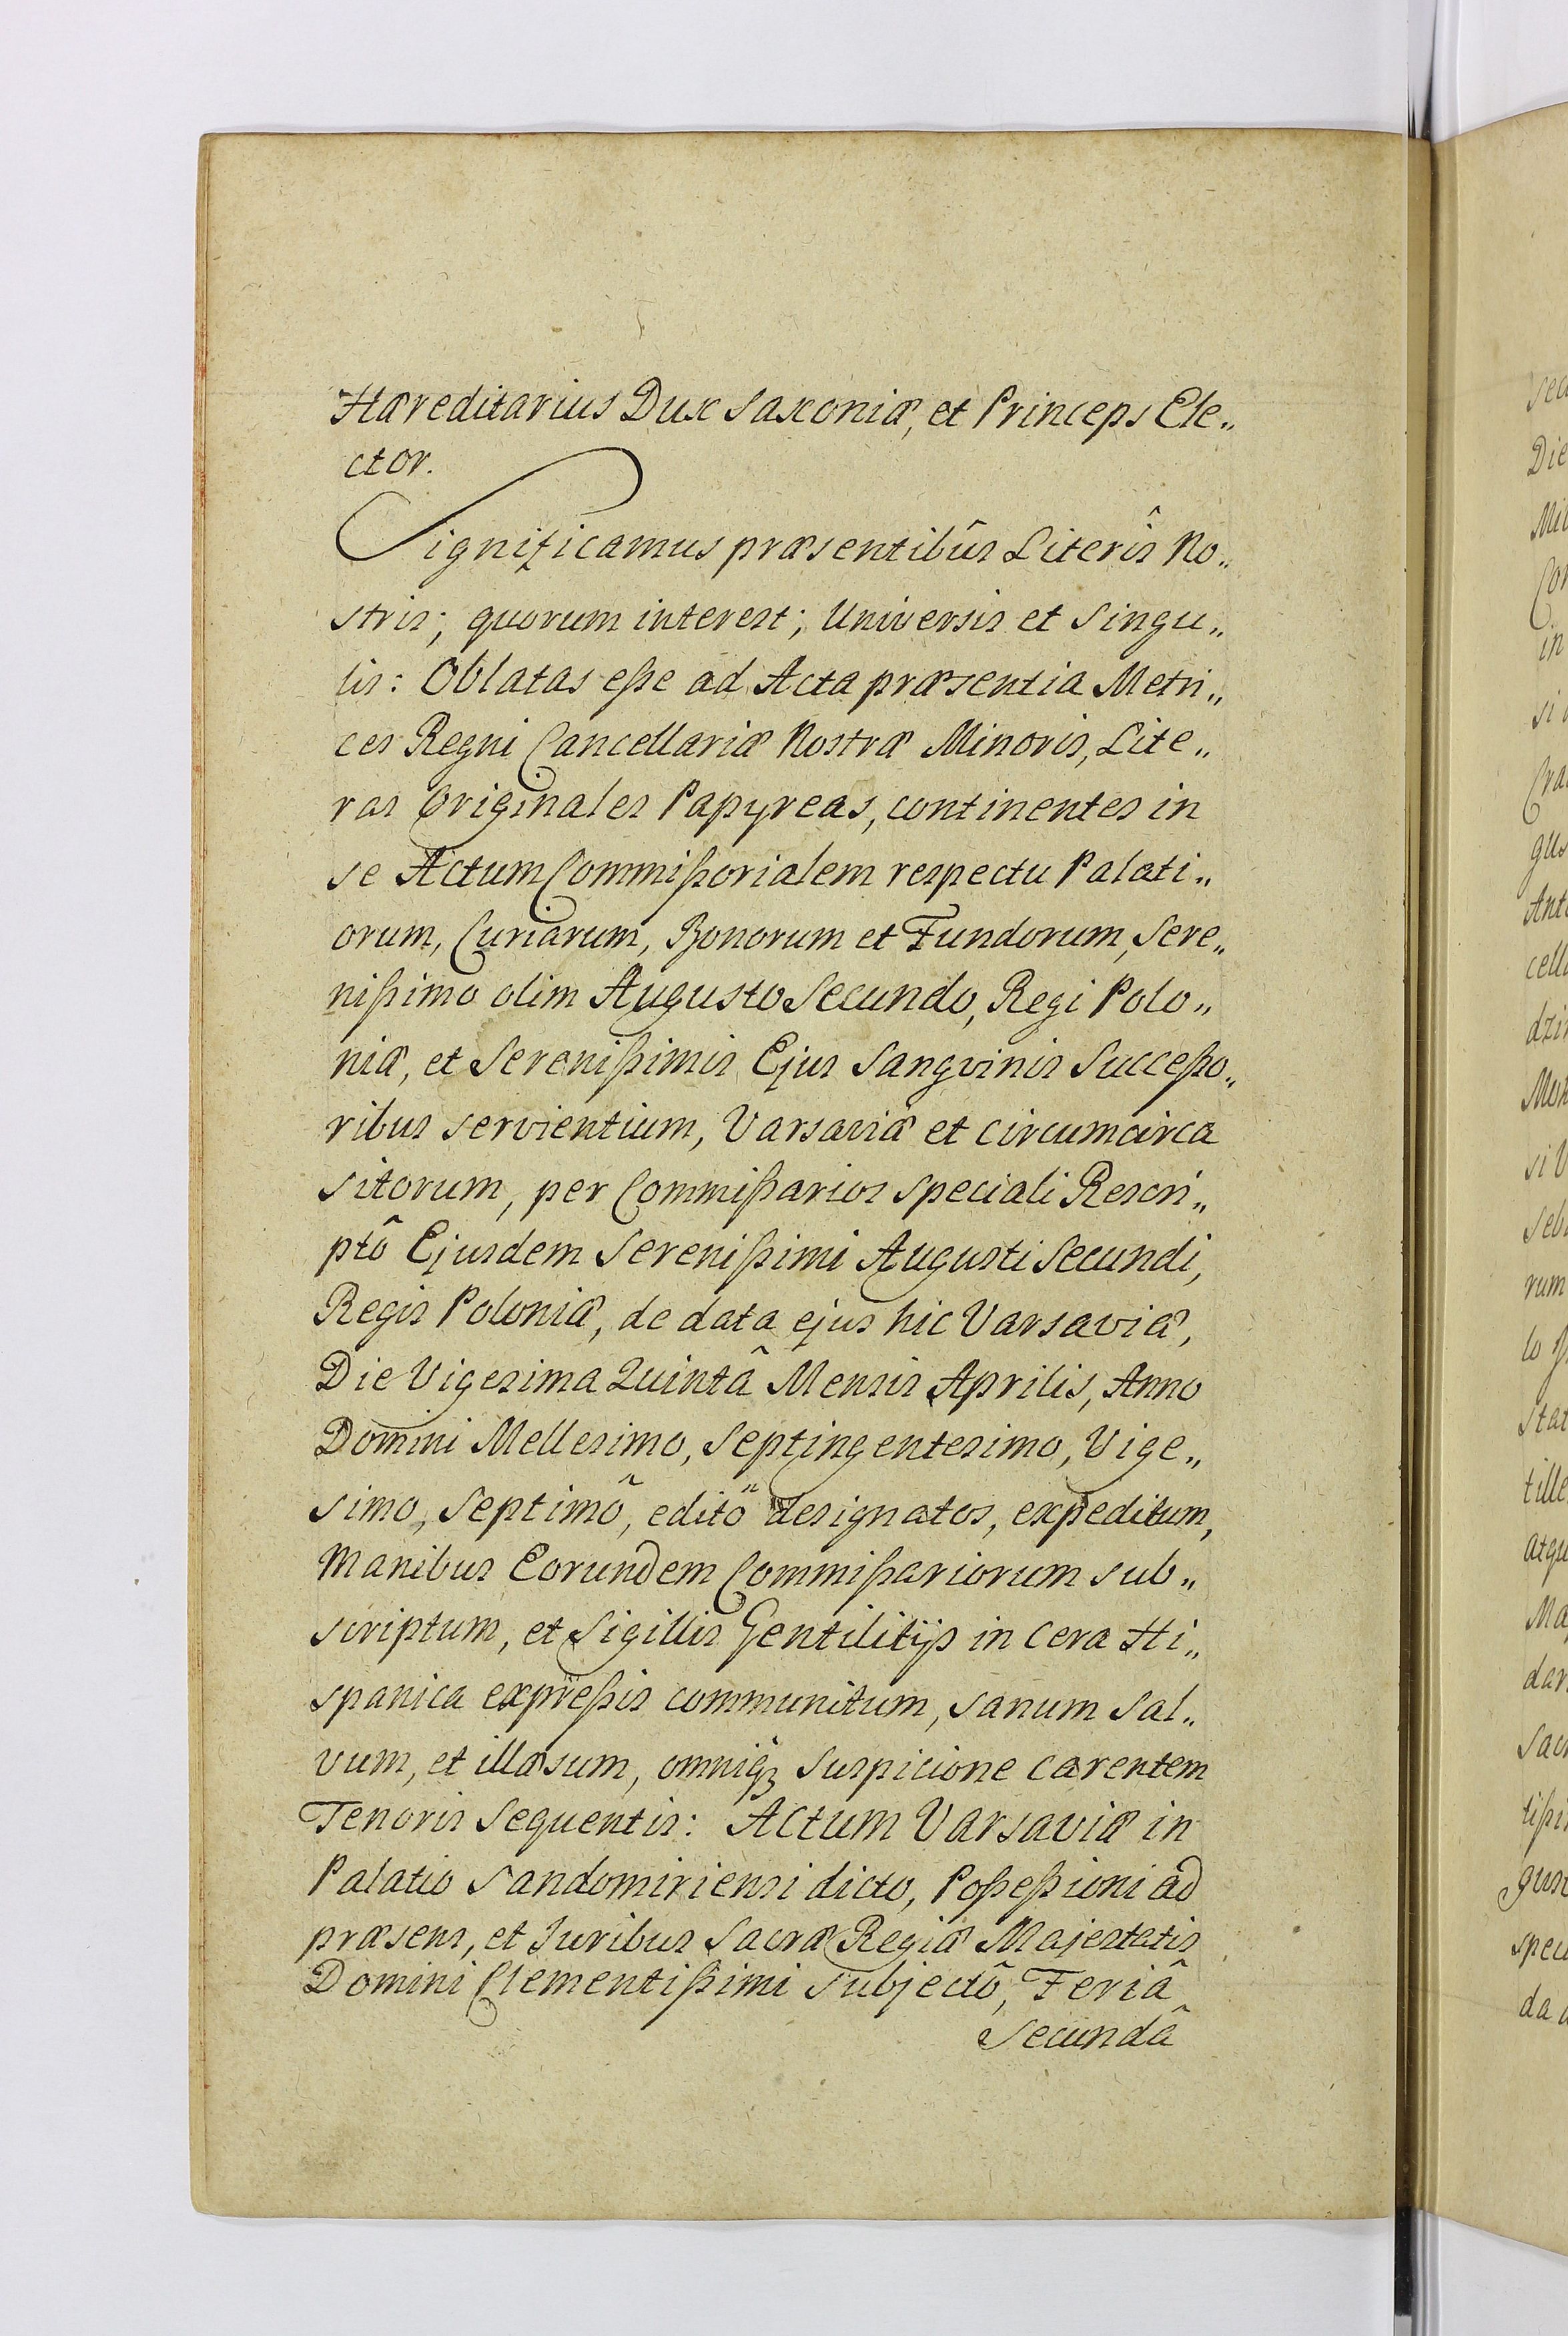 Hæreditarius Dux Saxoniæ, et Princeps Ele„
ctor.
Significamus præsentibûs Literîs No„
stris; quorum interest; Universis et Singu„
lis: Oblatas eße ad Acta præsentia Metri„
ces Regni Cancellariæ Nostræ Minoris, Lite„
ras Originales Papyreas, continentes in
se Actum Commißorialem respectu Palati„
orum, Curiarum, Bonorum et Fundorum, Sere„
nißimo olim Augusto Secundo, Regi Polo„
niæ, et Serenißimis Ejus Sangvinis Succeßo„
ribus servientium, Varsaviæ et circumcirca
sitorum, per Commißarios speciali Rescri„
ptô Ejusdem Serenißimi Augusti Secundi,
Regis Poloniæ, de data ejus hic Varsaviæ,
Die Vigesima Quintâ Mensis Aprilis, Anno
Domini Mellesimo, Septingentesimo, Vige„
simo, Septimô, editô designatos, expeditum,
Manibus Eorundem Commißariorum sub„
scriptum, et Sigillis Gentilitijs in Cera Hi„
spanica expreßis communitum, sanum Sal„
vum, et illæsum, omniq3 Suspicione carentem
Tenoris Sequentis: Actum Varsaviæ in
Palatio Sandomiriensi dicto, Poßeßioni ad
præsens, et Juribus Sacræ Regiæ Majestatis
Domini Clementißimi Subjectô, Feriâ
Secundâ